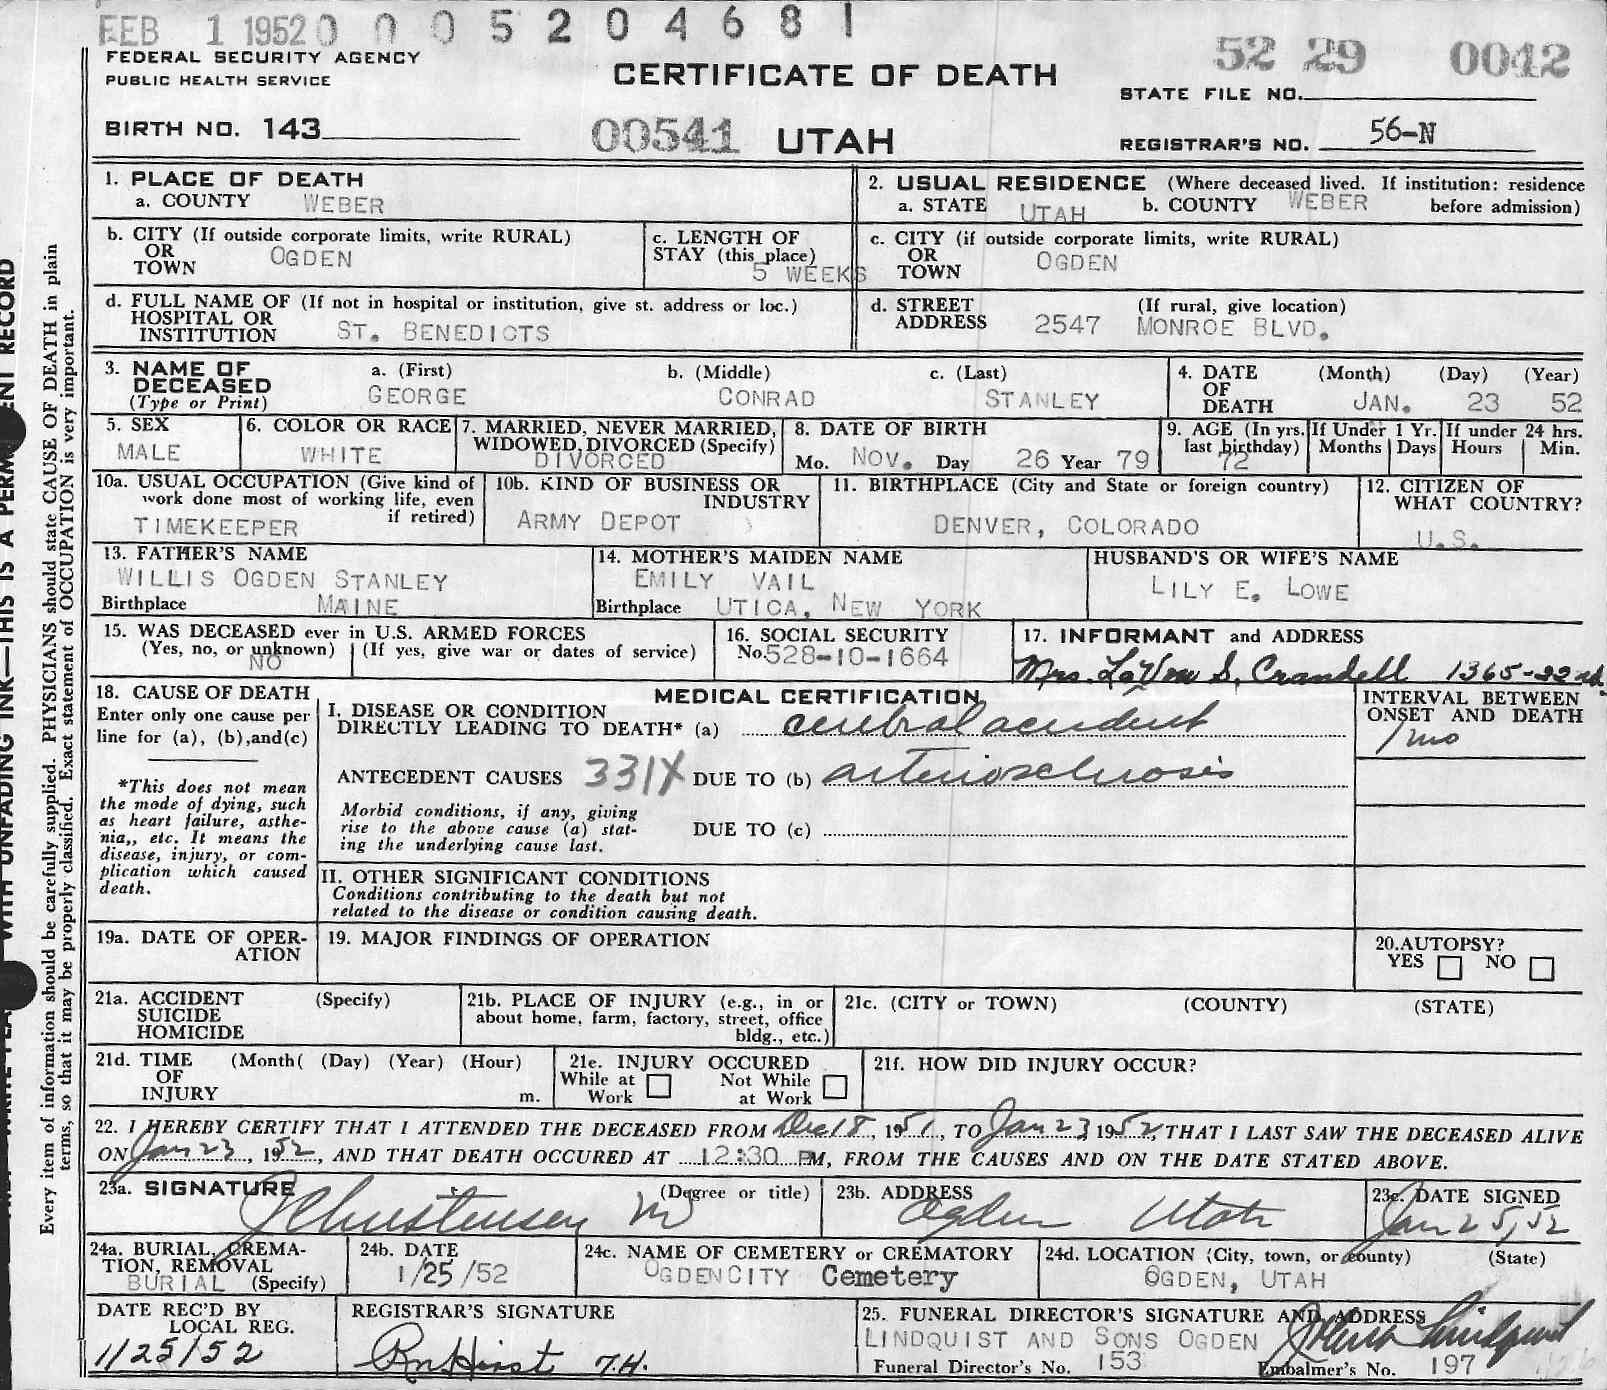 FEB 1 1952 0 0 0 5 2 0 4 6 8 1
52 29 0042
FEDERAL SECURITY AGENCY
PUBLIC HEALTH SERVICE
CERTIFICATE OF DEATH
STATE FILE NO.
BIRTH NO. 143
00541 UTAH
REGISTRAR'S NO. 56-N
1. PLACE OF DEATH
a. COUNTY WEBER
2. USUAL RESIDENCE (Where deceased lived. If institution: residence
a. STATE UTAH b. COUNTY WEBER before admission)
b. CITY (If outside corporate limits, write RURAL)
OR
TOWN OGDEN
c. LENGTH OF
STAY (this place)
5 WEEKS
c. CITY (if outside corporate limits, write RURAL)
OR
TOWN OGDEN
d. FULL NAME OF (If not in hospital or institution, give st. address or loc.)
HOSPITAL OR
INSTITUTION ST. BENEDICTS
d. STREET (If rural, give location)
ADDRESS 2547 MONROE BLVD.
3. NAME OF
DECEASED
(Type or Print)
a. (First) b. (Middle) c. (Last)
GEORGE CONRAD STANLEY
4. DATE (Month) (Day) (Year)
OF
DEATH JAN. 23 52
5. SEX
MALE
6. COLOR OR RACE
WHITE
7. MARRIED, NEVER MARRIED,
WIDOWED, DIVORCED (Specify)
DIVORCED
8. DATE OF BIRTH
Mo. NOV. Day 26 Year 79
9. AGE (In yrs.
last birthday)
72
If Under 1 Yr.
Months Days
If under 24 hrs.
Hours Min.
10a. USUAL OCCUPATION (Give kind of
work done most of working life, even
if retired)
TIMEKEEPER
10b. KIND OF BUSINESS OR
INDUSTRY
ARMY DEPOT
11. BIRTHPLACE (City and State or foreign country)
DENVER, COLORADO
12. CITIZEN OF
WHAT COUNTRY?
U.S.
13. FATHER'S NAME
WILLIS OGDEN STANLEY
Birthplace MAINE
14. MOTHER'S MAIDEN NAME
EMILY VAIL
Birthplace UTICA, NEW YORK
HUSBAND'S OR WIFE'S NAME
LILY E. LOWE
15. WAS DECEASED ever in U.S. ARMED FORCES
(Yes, no, or unknown) (If yes, give war or dates of service)
NO
16. SOCIAL SECURITY
No. 528-10-1664
17. INFORMANT and ADDRESS
Mrs. LaVon S. Crandell 1365-22nd.
18. CAUSE OF DEATH
Enter only one cause per
line for (a), (b),and(c)
*This does not mean
the mode of dying, such
as heart failure, asthe-
nia,, etc. It means the
disease, injury, or com-
plication which caused
death.
MEDICAL CERTIFICATION
I. DISEASE OR CONDITION
DIRECTLY LEADING TO DEATH* (a) cerebral accident
ANTECEDENT CAUSES 331X DUE TO (b) arteriosclerosis
Morbid conditions, if any, giving
rise to the above cause (a) stat-
ing the underlying cause last.
DUE TO (c)
INTERVAL BETWEEN
ONSET AND DEATH
1 mo
II. OTHER SIGNIFICANT CONDITIONS
Conditions contributing to the death but not
related to the disease or condition causing death.
19a. DATE OF OPER-
ATION
19. MAJOR FINDINGS OF OPERATION
20.AUTOPSY?
YES NO
21a. ACCIDENT (Specify)
SUICIDE
HOMICIDE
21b. PLACE OF INJURY (e.g., in or
about home, farm, factory, street, office
bldg., etc.)
21c. (CITY or TOWN) (COUNTY) (STATE)
21d. TIME (Month( (Day) (Year) (Hour)
OF
INJURY m.
21e. INJURY OCCURED
While at Not While
Work at Work
21f. HOW DID INJURY OCCUR?
22. I HEREBY CERTIFY THAT I ATTENDED THE DECEASED FROM Dec 18, 1951, TO Jan 23, 1952, THAT I LAST SAW THE DECEASED ALIVE
ON Jan 23, 1952, AND THAT DEATH OCCURED AT 12:30 PM, FROM THE CAUSES AND ON THE DATE STATED ABOVE.
23a. SIGNATURE (Degree or title)
Christensen MD
23b. ADDRESS
Ogden Utah
23c. DATE SIGNED
Jan 25, 52
24a. BURIAL, CREMA-
TION, REMOVAL
BURIAL (Specify)
24b. DATE
1/25/52
24c. NAME OF CEMETERY or CREMATORY
OGDEN CITY Cemetery
24d. LOCATION (City, town, or county) (State)
OGDEN, UTAH
DATE REC'D BY
LOCAL REG.
1/25/52
REGISTRAR'S SIGNATURE
T.H.
25. FUNERAL DIRECTOR'S SIGNATURE AND ADDRESS
LINDQUIST AND SONS OGDEN
Funeral Director's No. 153 Embalmer's No. 197
Every item of information should be carefully supplied. PHYSICIANS should state CAUSE OF DEATH in plain
terms, so that it may be properly classified. Exact statement of OCCUPATION is very important.
WITH UNFADING INK—THIS IS A RECORD